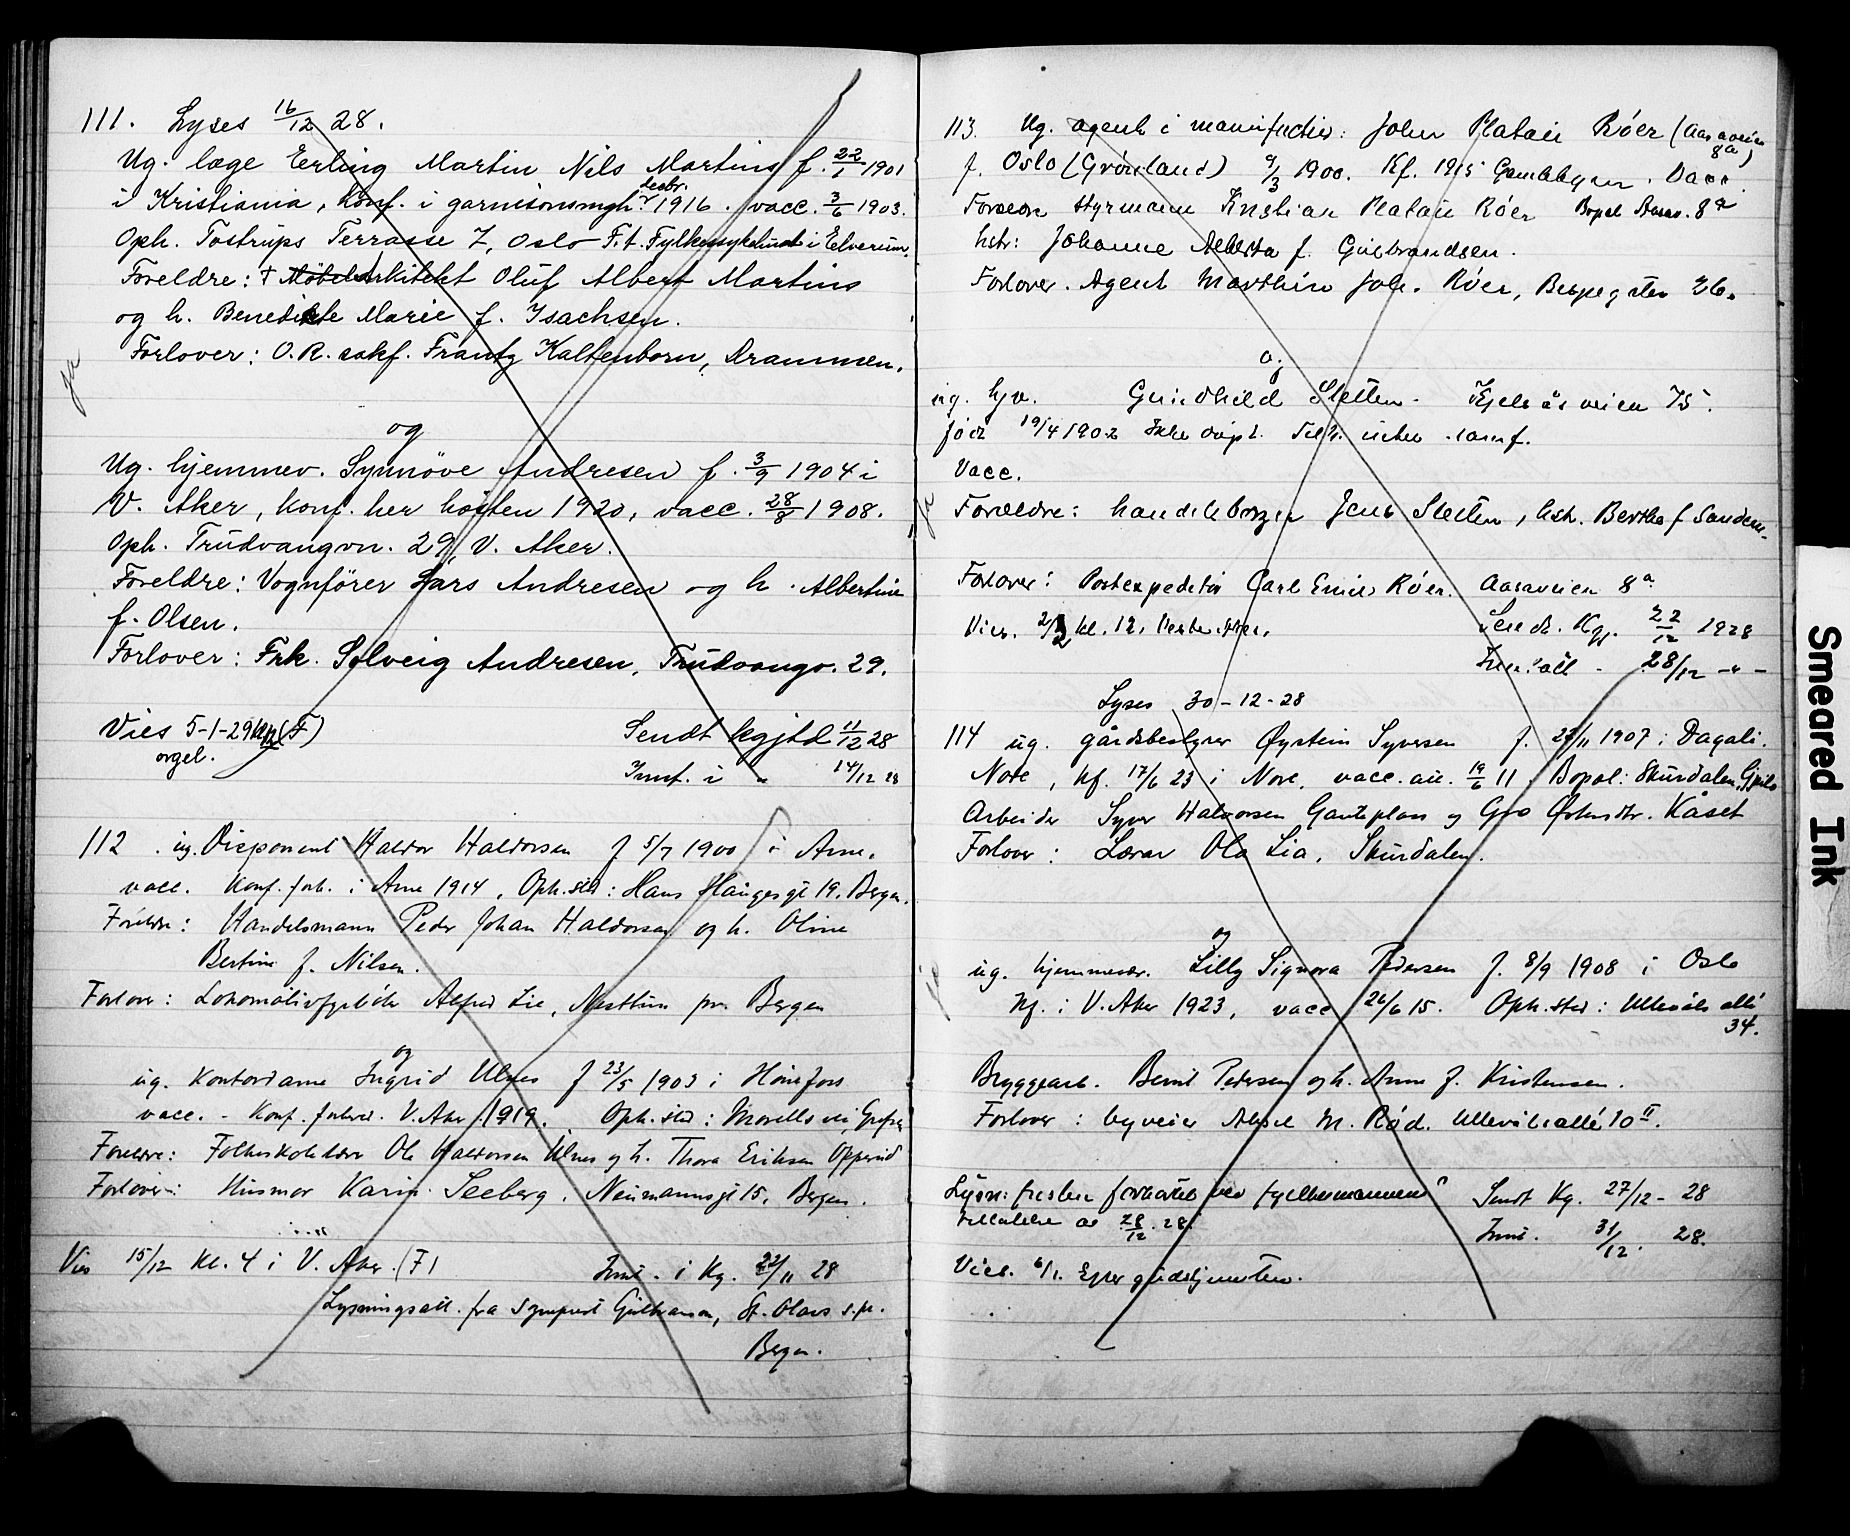 111. Lyses 16/12 28.
Ug. læge Erling Martin Nils Martins f. 22/1 1901
i Kristiania, konf. i garnisonsmgh. 1916. vacc. 3/6 1903.
Oph. Tostrups Terrasse 7, Oslo F.t. Fylkessykehuset i Elverum.
Foreldre: † Arkitekt Oluf Albert Martins
og h. Benedikte Marie f. Isachsen.
Forlover: O.R. sakf. Frantz Kaltenborn, Drammen.
ja
og
Ug. hjemmev. Synnöve Andresen f. 3/9 1904 i
V. Aker, konf. her hösten 1920, vacc. 28/8 1908.
Oph. Trudvangvn. 29, V. Aker.
Foreldre: Vognförer Lars Andresen og h. Albertine
f. Olsen.
Forlover: Frk. Solveig Andresen, Trudvangv. 29.
Vies 5-1-29 (F)
orgel.
Sendt kgjtd 11/12 28
Innf. i " 14/12 28
112. ug. Disponent Haldor Haldorsen f 5/7 1900 i Arne.
vacc. Konf. forh. i Arne 1914, Oph.sted: Hans Haugesgt 19, Bergen.
Foreldre: Handelsmann Peder Johan Haldorsen og h. Oline
Bertine f. Nilsen.
Forlover: Lokomotivfyrböter Alfred Lie, Nesttun pr. Bergen
og
ug. Kontordame Ingrid Ulnes f 23/5 1903 i Hönefoss
vacc. - Konf. forhed. V. Aker 1919. Oph.sted: Morells vei, Grefsen
Foreldre: Folkeskolelærer Ole Haldorsen Ulnes og h. Thora Eriksen Opperud
Forlover: Husmor Karin Seeberg, Neumannsgt 15, Bergen.
Vies 15/12 Kl. 4 i V. Aker. (F)
Innf. i Kg. 22/11 28
Lysningsatt. fra sogneprest Gulbranson, St. Olavs s.pr.
Bergen.
113. Ug. agent i manufactur: John Platou Röer (Aasaveien
8a)
f. Oslo (Grönland) 9/3 1900. Kf. 1915 Gamlebyen. Vacc.
Forældre styrmann Kristian Platou Röer Bopæl Aasav. 8a
hstr: Johanne Alberta f. Gulbrandsen.
Forlover. Agent Marthin Joh. Röer, Bergegaten 26.
og
ug. hjv. Gundhild Sletten - Kjelsåsveien 75.
född 19/4 1902 Ikke döpt. Tilh. intet samf.
Vacc.
ja
Forældre: handelsborger Jens Sletten, hstr. Bertha f Sandem.
Forlover: Postexpeditör Carl Emil Röer. Aasaveien 8a
Vies. kl. 12. Vestre Aker.
Sendt. Kgj. 22/12 1928
28/12 -"-
Lyses 30-12-28
114 ug. gårdsbestyrer Øystein Syversen f. 27/11 1907 i Dagali.
Nore, kf. 17/6 23 i Nore, vacc. att. 19/6 11. Bopæl: Skurdalen, Geilo
Arbeider Syver Halvorsen Gauteplass og Gro Östensdtr. Kåset
Forlover: Lærer Ola Lia, Skurdalen.
og
ja
ug. hjemmevær. Lilly Signora Pedersen f. 8/9 1908 i Oslo
Kf. i V. Aker 1923, vacc 26/6 15. Oph.sted: Ullevåls allé
34.
Bryggearb. Bernt Pedersen og h. Anna f. Kristensen.
Forlover: byveier Aksel M. Röd. Ullevålsallé 10 II.
Lysn: fristen forkortet ved fylkesmannens
tillatelse av 28/12 28.
Sendt Kg. 27/12 - 28
Innf. 31/12. 28.
Vies. 6/1. Efter gudstjenesten.
Smeared Ink